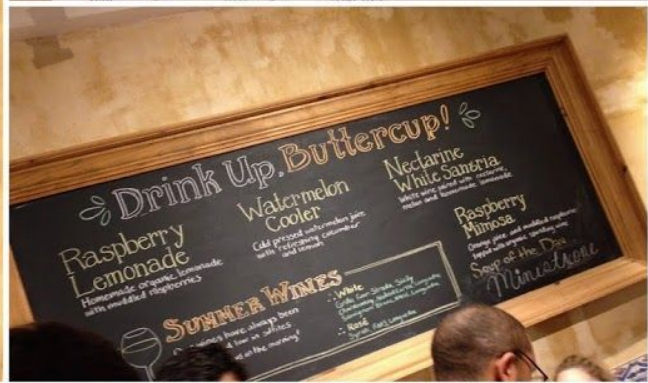 Drink Up, Buttercup!
Raspberry
Lemonade
Homemade organic lemonade
with muddled raspberries
Watermelon
Cooler
Cold pressed watermelon juice
with refreshing cucumber
and lemon
Nectarine
White Sangria
White wine paired with nectarine,
melon and homemade lemonade
Raspberry
Mimosa
Orange juice and muddled raspberries
topped with organic sparkling wine
Soup of the Day
Minestrone
SUMMER WINES
wines have always been
low in sulfites
in the morning!
White
Sicily
Rosé
Syrah